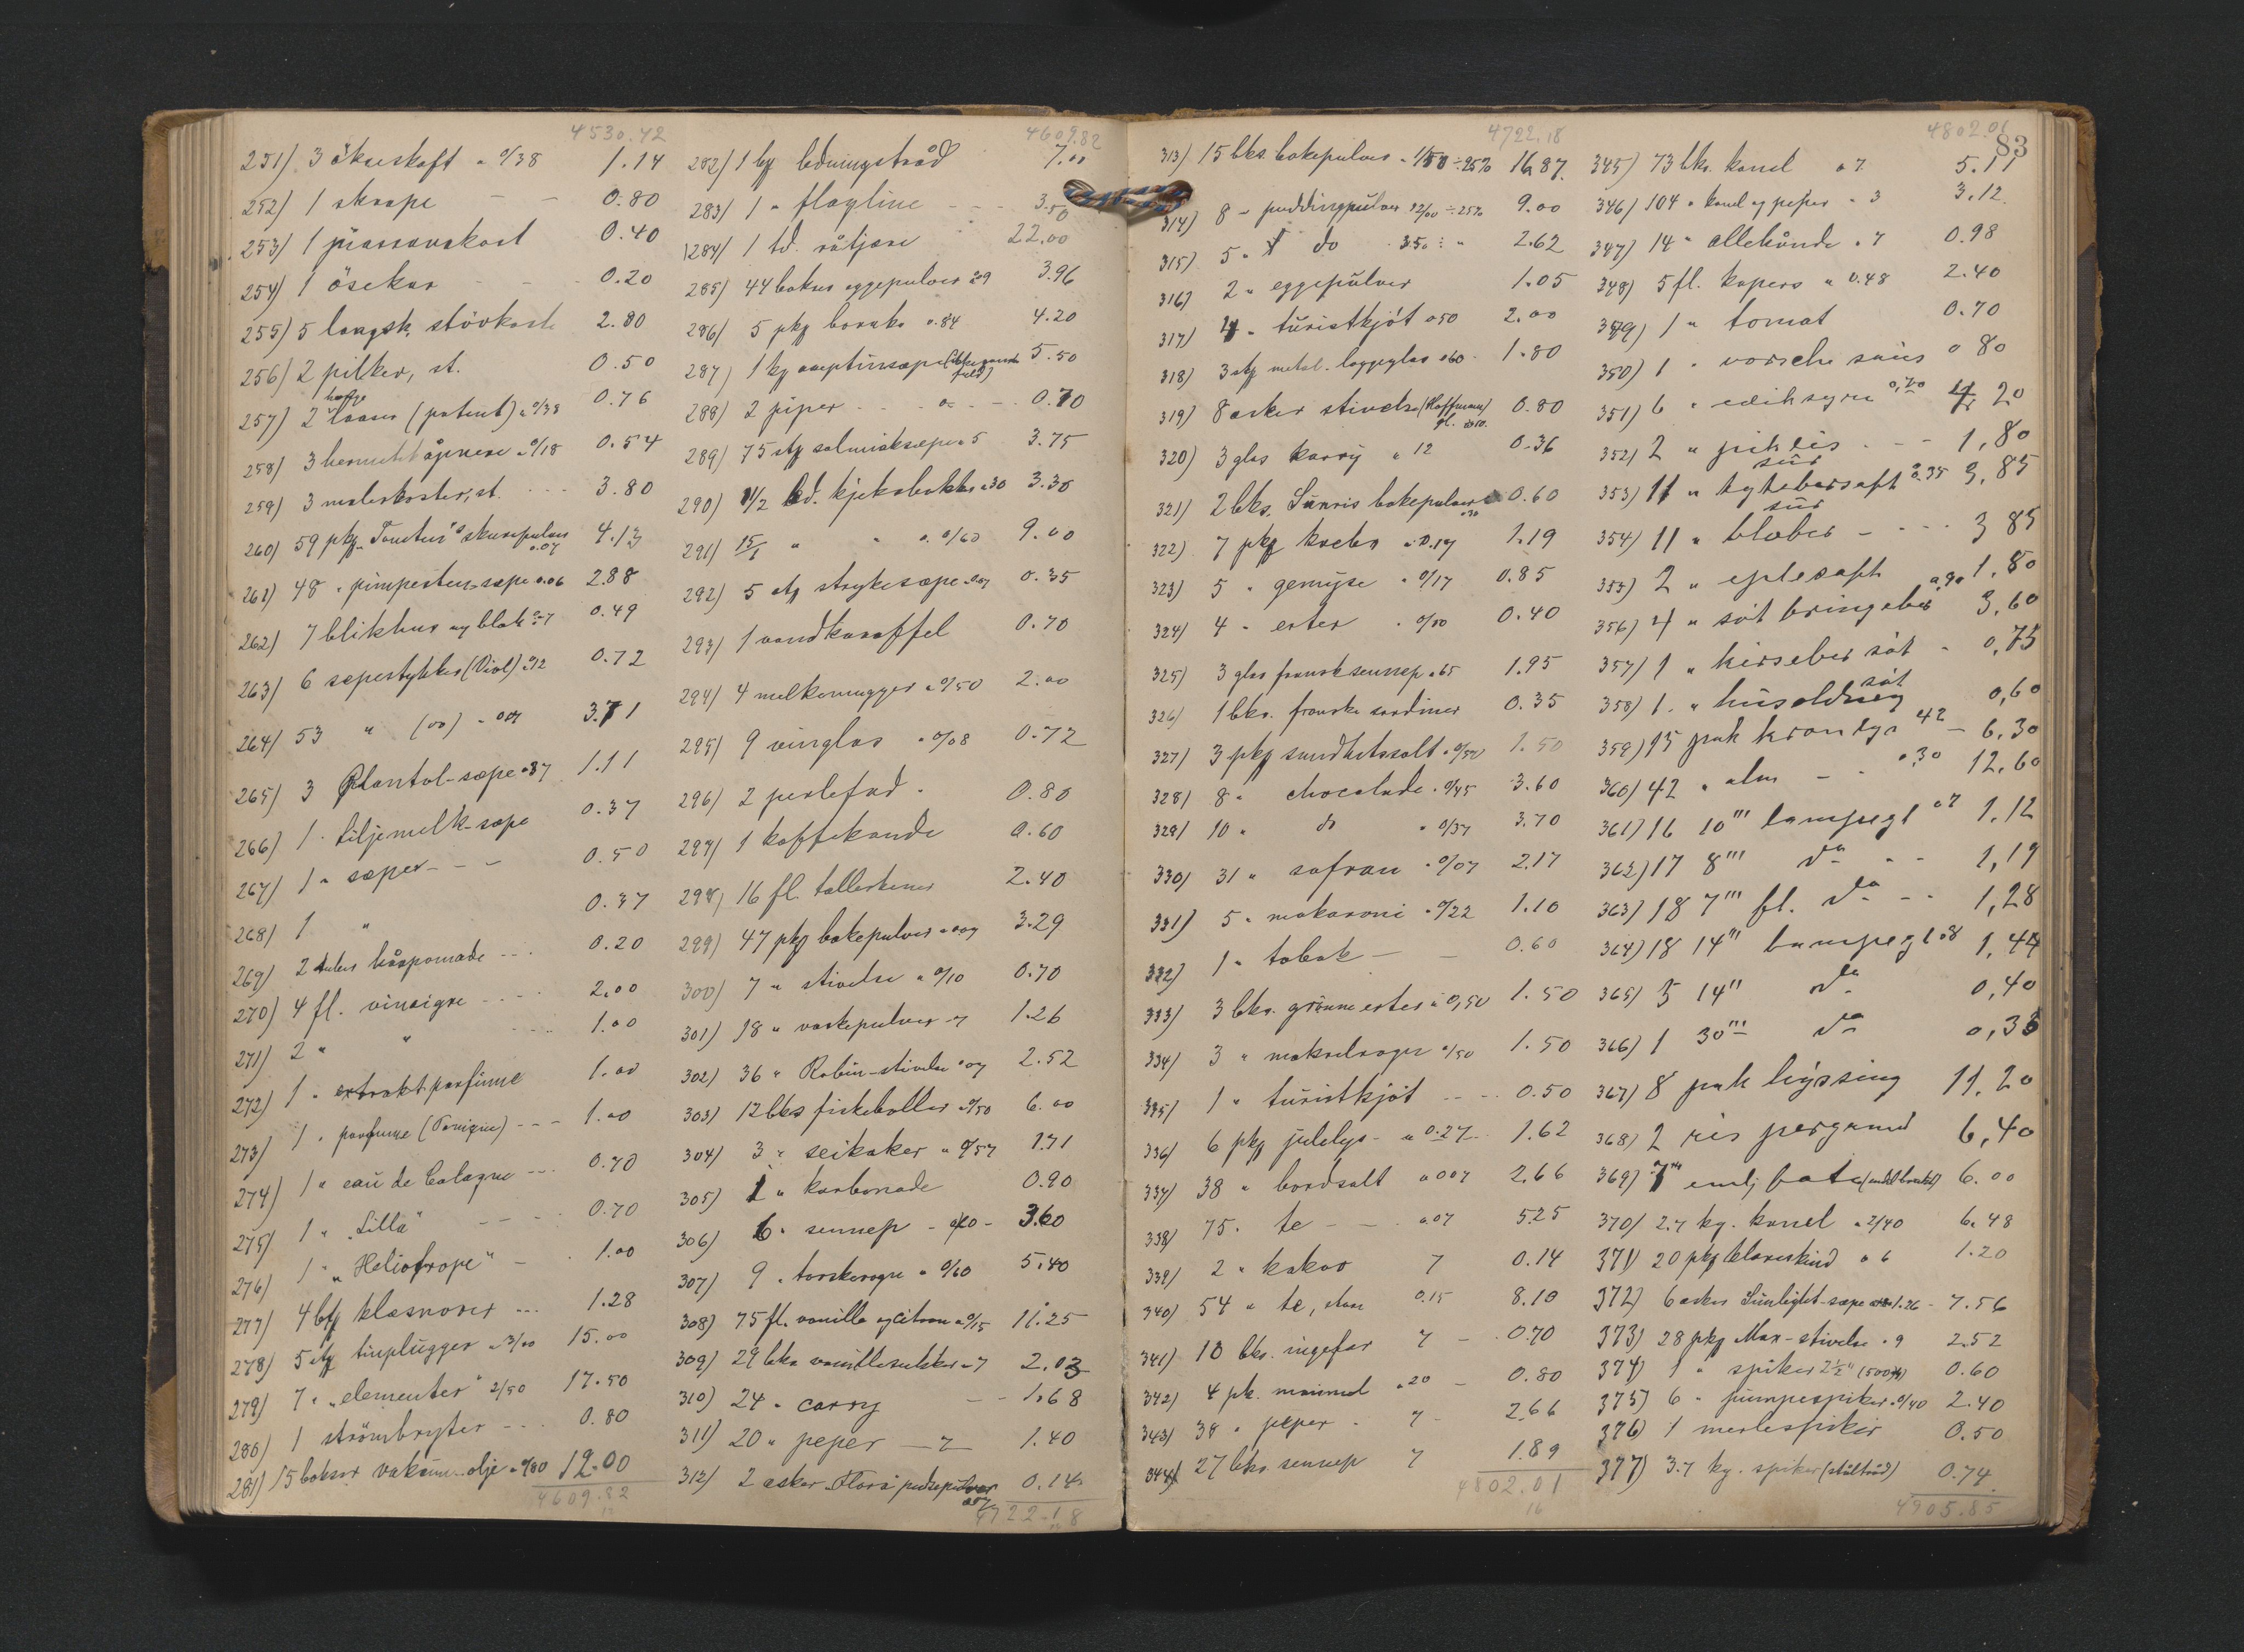 4530.42
251) 3 økseskaft a 0/38 1.14
252) 1 skrape - - 0.80
253) 1 piassavakost 0.40
254) 1 ösekar - - 0.20
255) 5 langsk. støvkoste 2.80
256) 2 pilker, st. 0.50
257) 2 hænge laaser (patent) a 0/38 0.76
258) 3 hermetikåpnere a 0/18 0.54
259) 3 malerkoster, st. --- 3.80
260) 59 pkg skurepulver a.07 4.13
261) 48 " pimpesten-sæpe a 0.06 2.88
262) 7 blikhus og blok a 7 0.49
263) 6 sæpestykker (Viol) a 12 0.72
264) 53 " (oo) a 007 3.71
265) 3 Plantol-sæpe a 37 1.11
266) 1 Liljemelk-sæpe 0.37
267) 1 " sæper - - 0.50
268) 1 " 0.37
269) 2 tuber hårpomade --- 0.20
270) 4 fl. vinaigre ---- 2.00
271) 2 " " ---- 1.00
272) 1 " extrakt parfüme 1.00
273) 1 " parfume --- 1.00
274) 1 " eau de Cologne --- 0.70
275) 1 " "Lilla" ---- 0.70
276) 1 " "Heliotrope" - 1.00
277) 4 klæsnorer --- 1.28
278) 5 stg tinplugger a 3/00 15.00
279) 7 " "elementer" 2/50 17.50
280) 1 strömbryter --- 0.80
281) 15 bokser vakuum-olje a 0/80 12.00
4609.82
4609.82
282) 1 kg ledningstråd 7.00
283) 1 " flagline --- 3.50
284) 1 td. råtjære 22.00
285) 44 bokser eggepulver a 09 3.96
286) 5 pkg boraks a.84 4.20
287) 1 kg 5.50
288) 2 piper --- 0.70
289) 75 stg salmiaksæpe a 5 3.75
290) 11/2 bd. kjeksbokks a 30 3.30
291) 15/1 " " a 0/60 9.00
292) 5 stg strykesæpe a 07 0.35
293) 1 vandkaraffel 0.70
294) 4 melkemugger a 0/50 2.00
295) 9 vinglas a 0/08 0.72
296) 2 perlefad - 0.80
297) 1 kaffekande 0.60
298) 16 fl. tallerkener 2.40
299) 47 pkg bakepulver a 007 3.29
300) 7 " stivelse a 0/10 0.70
301) 18 " vaskepulver a 7 1.26
302) 36 " Robin-stivelse a 07 2.52
303) 12 bks fiskeboller a 0/50 6.00
304) 3 " seikaker a 0/57 1.71
305) 1 " karbonade 0.90
306) 6 " sennep - a 60 - 3.60
307) 9 " torskerogn a 0/60 5.40
308) 75 fl. vanille og citron a 0/15 11.25
309) 29 bks vanillesukker a 7 2.03
310) 24 " carry - - 1.68
311) 20 " peper - 7 1.40
312) 2 esker Flora pudsepulver a 07 0.14
4722.18
4722.18
313) 15 bks bakepulver a 1/50 ÷ 25% 16.87
314) 8 " puddingpulver 12/00 ÷ 25% 9.00
315) 5 " do 3.50 ÷ " 2.62
316) 2 " eggepulver 1.05
317) 4 " turistkjöt a 50 2.00
318) 3 stg metal. loggeglas a 60 - 1.80
319) 8 esker stivelse (Hoffmann) gl. a 10. 0.80
320) 3 glas karry a 12 0.36
321) 2 bks. Sunris bakepulver a 30 0.60
322) 7 pkg a 0.17 1.19
323) 5 " gemyse a 0/17 0.85
324) 4 " erter a 0/10 0.40
325) 3 glas fransk sennep a 65 1.95
326) 1 bks. franske sardiner 0.35
327) 3 pkg sundhetssalt a 0/50 1.50
328) 8 " chocolade a 0/45 3.60
329) 10 " do a 0/37 3.70
330) 31 " safran a 0/07 2.17
331) 5 " makaroni a 0/22 1.10
332) 1 " tobak - - 0.60
333) 3 bks. grønne erter a 0,50 1.50
334) 3 " makrelrogn a 0/50 1.50
335) 1 " turistkjöt ---- 0.50
336) 6 pkg julelys - a 0.27 1.62
337) 38 " bordsalt a 007 2.66
338) 75 " te - - - a.07 5.25
339) 2 " kakao 7 0.14
340) 54 " te, stor 0.15 8.10
341) 10 bks. ingefær 7 - 0.70
342) 4 pk. a 20 - 0.80
343) 38 " peper - 7 - 2.66
344) 27 bks. sennep 7 1.89
4802.01
16
4802.01
83
345) 73 bks. kanel a 7. 5.11
346) 104 " kanel og peper a 3 3.12
347) 14 " allehånde a 7 0.98
348) 5 fl. kapers a 0.48 2.40
349) 1 " tomat 0.70
350) 1 " vorsche saus 0 80
351) 6 " ediksyre 0,70 4, 20
352) 2 " pikles - - - 1,80
353) 11 " sur tytebærsaft a 0.35 3,85
354) 11 " sur blåbær - - - - 3 85
355) 2 " eplesaft a 90 1,80
356) 4 " söt bringebær 3,60
357) 1 " kirsebær söt - 0,75
358) 1 " husoldning söt 0,60
359) 15 pak kronlys 42 - 6,30
360) 42 " alm - - a 30 12,60
361) 16 10''' lampegl a 7 1,12
362) 17 8''' do - - 1,19
363) 18 7''' fl. do - - 1,28
364) 18 14''' lampegl a 8 1,44
365) 5 14'' do 0,40
366) 1 30''' do 0,36
367) 8 pak lissing 11,20
368) 2 ris pergamd 6,40
369) 1 emlj fate 6.00
370) 2.7 kg. kanel a 2/40 6.48
371) 20 pkg klareskind a 6 1.20
372) 6 esker Sunlight-sæpe a 1.26 - 7.56
373) 28 pkg Max-stivelse a 9 2.52
374) 1 " spiker 2½" (500 stk) 0.60
375) 6 " pumpespiker a 0/40 2.40
376) 1 merlespiker 0.50
377) 3.7 kg. spiker (ståltråd) 0.74
4905.85